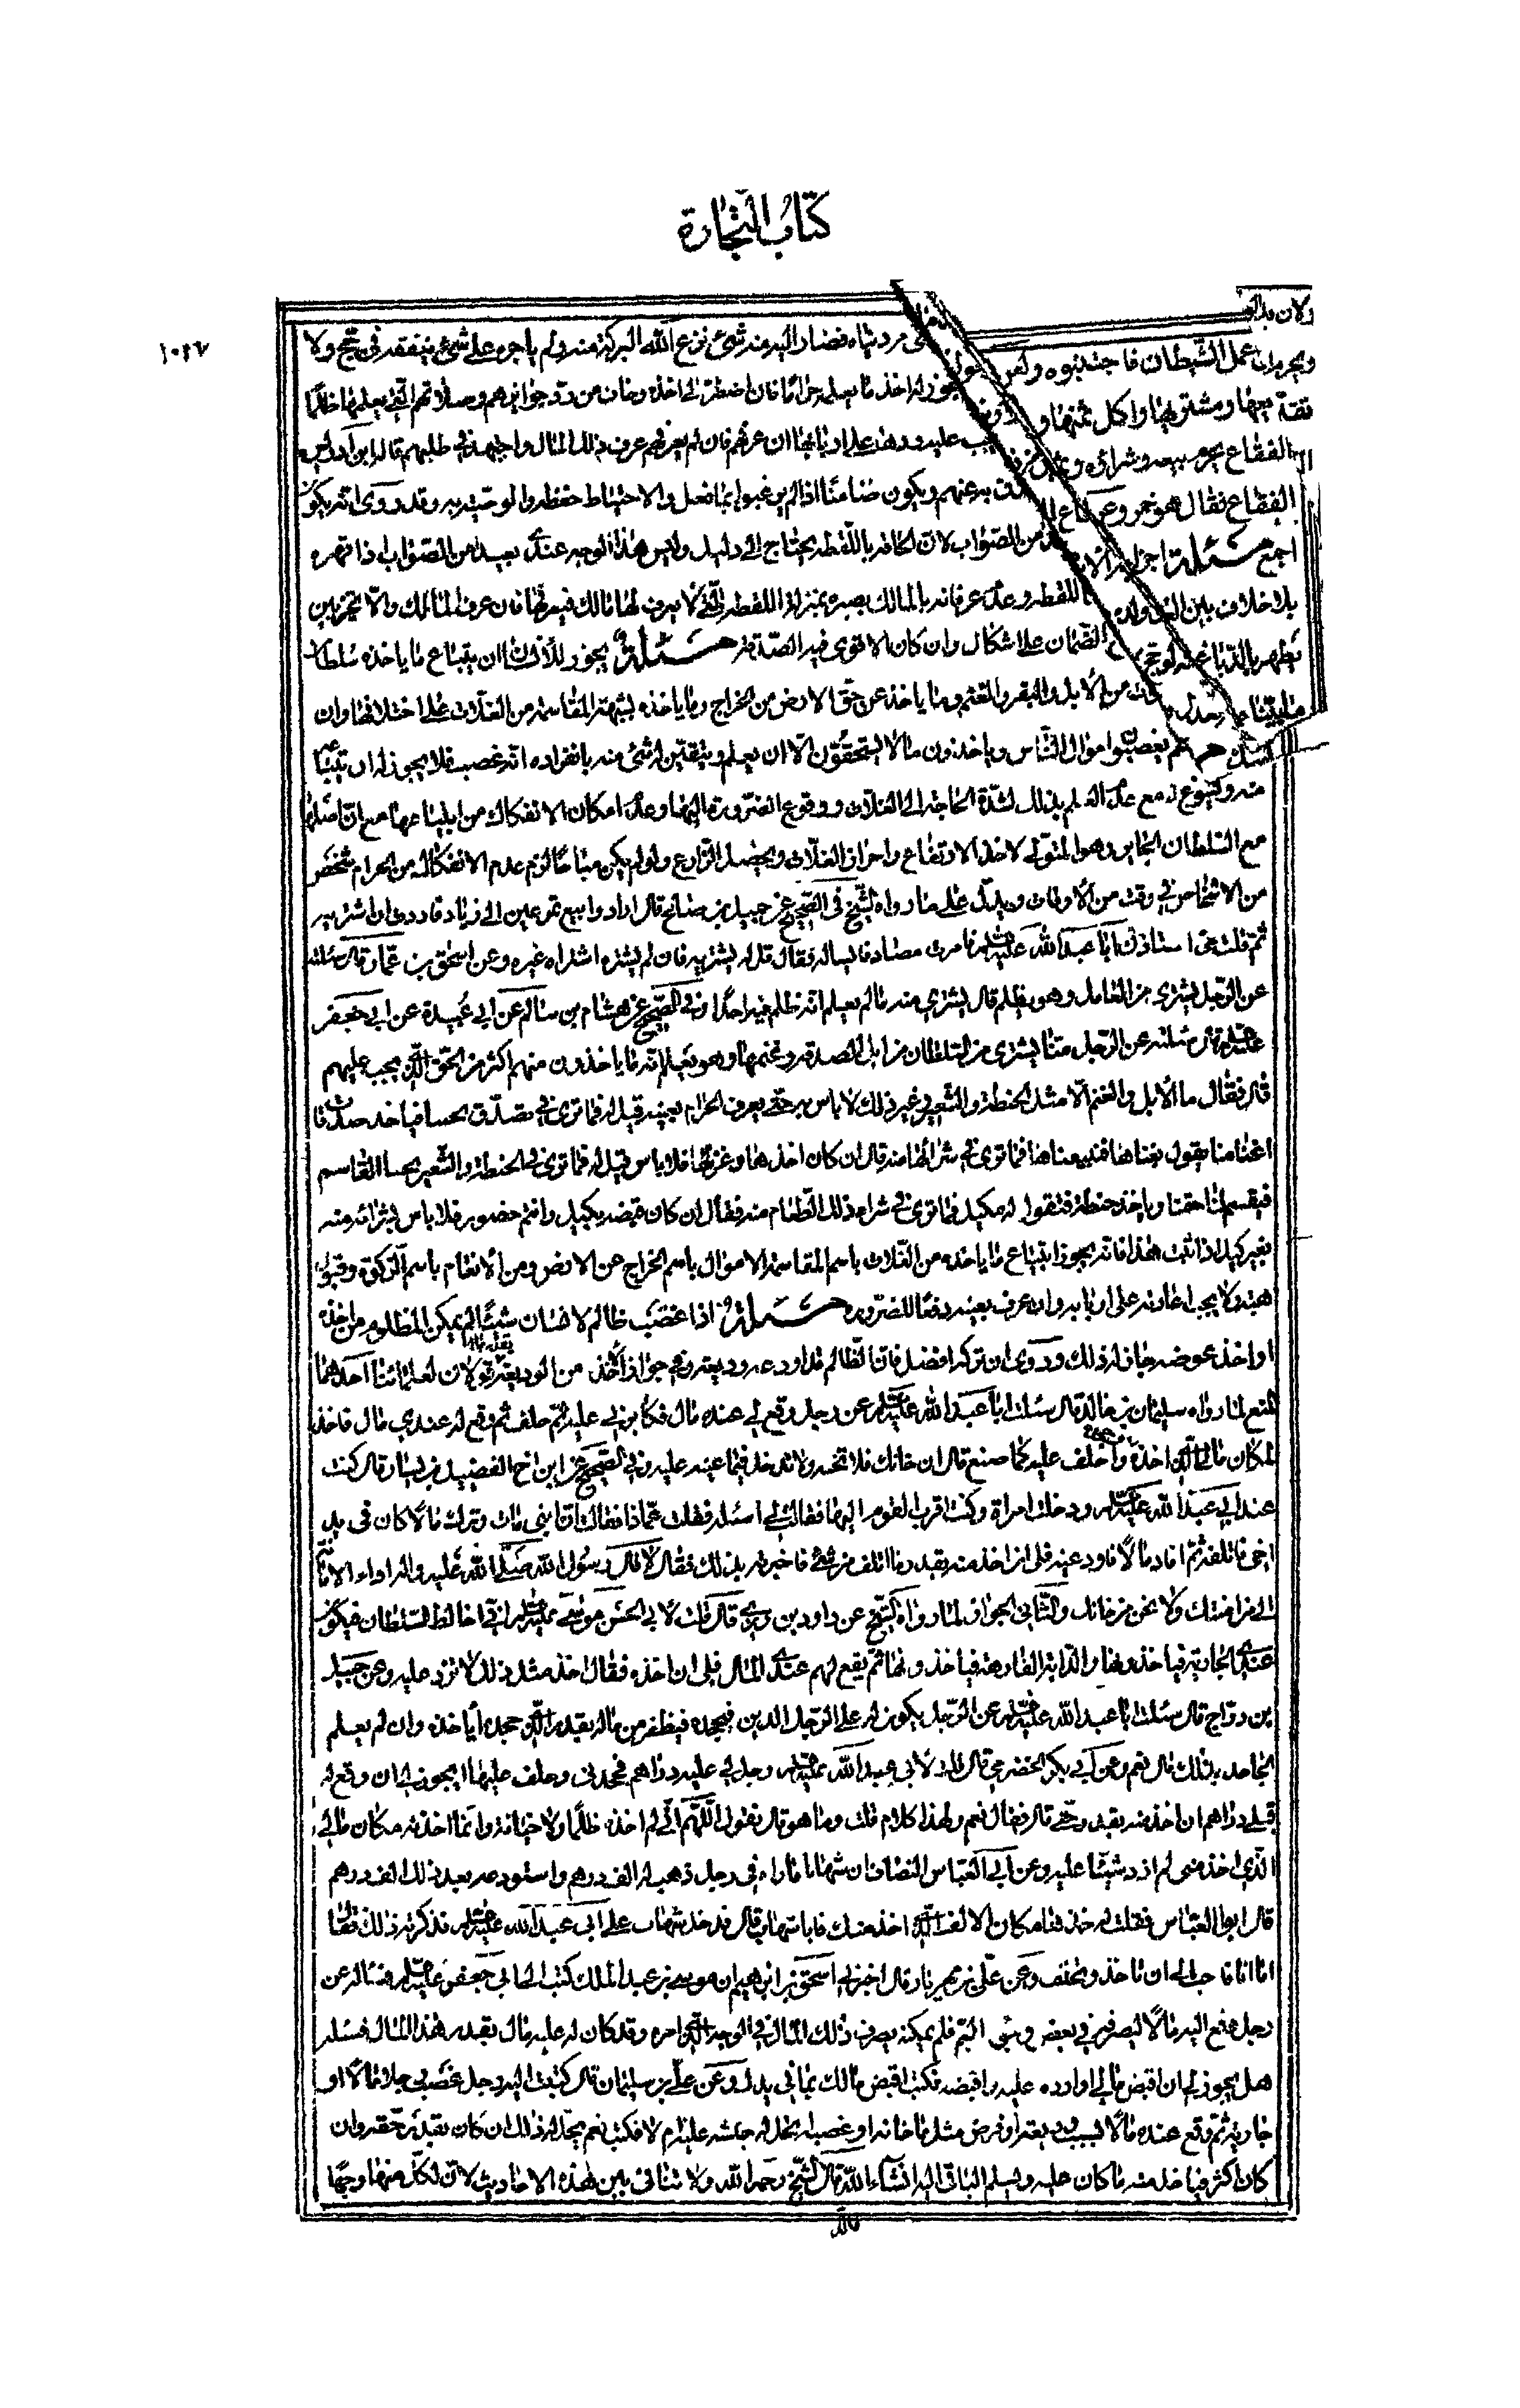 كتاب التجارة
١٠٢٧
من دنياه فصار اليه منه شئ نزع الله البركة منه ولم ياجره على شئ ينفقه في حج ولا
يجوز له اخذ ما يعلمه حراما فان اضطر الى اخذه وخاف من رد جوايزهم وصلاتهم التي يعلمها ظلما
عليه ردها على اربابها ان عرفهم فان لم يعرفهم عرف ذلك المال واجتهد في طلبهم قال ابن ادريس
به عنهم ويكون ضامنا اذا لم يرغبوا بما فعل والاحتياط حفظه والوصية به وقد روى انه يكون
من الصواب لان الحاقه باللقطه يحتاج الى دليل وليس هذا الوجه عندى بعيدا من الصواب اذا قهره
اللقطه وعدم عرفانه بالمالك يصيره بمنزلة اللقطه التي لا يعرف لها مالك فيعرفها فان عرف المالك والا تخير بين
الضمان على اشكال وان كان الاقوى فيه الصدقة مسئلة يجوز للانسان ان يبتاع ما ياخذه سلطان
من الابل والبقر والغنم وما ياخذ عن حق الارض من الخراج وما ياخذه بشبهة المقاسمة من الغلات على اختلافها وان
يغصبوا اموال الناس وياخذون ما لا يستحقون الا ان يعلم ويتيقن له شئ منه بانفراده انه غصب فلا يجوز له ان يبتاعه
منه وكيسوغ له مع عدم العلم بذلك لشدة الحاجة الى الغلات ووقوع الضرورة اليها وعدم امكان الانفكاك من ابتياعها مع ان
مع السلطان الجاير وهو المتولى لاخذ الارتفاع واحراز الغلات ويحصل الزارع ولو لم يكن مباحا لزم عدم الانفكاك من الحرام شخص
من الاشخاص في وقت من الاوقات ويدل على ما رواه الشيخ في الصحيح عن جميل بن صالح قال ارادوا بيع تمر عين ابى زياد فاردت ان اشتريه
ثم قلت حتى استاذن ابا عبد الله عليه السلام فامرت مصادفا يساله فقال قل له يشتريه فان لم يشتره اشتراه غيره وعن اسحق بن عمار قال سئلته
عن الرجل يشترى من العامل وهو يظلم قال يشترى منه ما لم يعلم انه ظلم فيه احدا وفي الصحيح عن هشام بن سالم عن ابي عبيدة عن ابي جعفر
عليه السلام قال سئلته عن الرجل منا يشترى من السلطان من ابل الصدقة وغنمها وهو يعلم انه ياخذون منهم اكثر من الحق الذي يجب عليهم
قال فقال ما الابل والغنم الا مثل الحنطة والشعير وغير ذلك لا باس به حتى يعرف الحرام بعينه قيل له فما ترى في مصدق يجئنا فياخذ صدقات
اغنامنا نقول بعناها فيبيعناها فما ترى في شرائها منه قال ان كان اخذها وعزلها فلا باس قيل له فما ترى في الحنطة والشعير يجيئنا القاسم
فيقسم لنا حظنا وياخذ حنطه فتقوله مكيل فما ترى في شراء ذلك الطعام منه فقال ان كان قبضه بكيل وانتم حضور فلا باس بشرائه منه
بغير كيل اذا ثبت هذا فانه يجوز ابتياع ما ياخذه من الغلات باسم المقاسمة او الاموال باسم الخراج عن الارض ومن الانعام باسم الزكوة وقبول
هبته ولا يجب اعادته على اربابه وان عرف بعينه دفعا للضرورة مسئلة اذا غصب ظالم لانسان شيئا لم يمكن المظلوم من اخذه
او اخذ عوضه جاز له ذلك وروى ان تركه افضل فان الظالم وديعه وفي جواز الاخذ من الوديعة قولان لعلمائنا احدهما
المنع لما رواه سليمان بن خالد قال سئلت ابا عبد الله عليه السلام عن رجل وقع لي عنده مال فكابرني عليه ثم حلف ثم وقع له عندي مال فاخذه
لمكان مالى الذي اخذه واحلف عليه كما صنع قال ان خانك فلا تخنه ولا تدخل فيما عبته عليه وفي الصحيح عن ابن اخ الفضيل بن يسار قال كنت
عند ابي عبد الله عليه السلام ودخلت امراة وكنت اقرب القوم اليها فقالت لي اسئله فقلت عما ذا فقالت ان ابني مات وترك مالا كان في يد
اخي فاتلفه ثم افاد مالا فاودعنيه فلى ان اخذ منه بقدر ما اتلف من شئ فاخبرته بذلك فقال لا قال رسول الله صلى الله عليه واله اداء الامانة
الى من ائتمنك ولا تخن من خانك والثاني الجواز لما رواه الشيخ عن داود بن رزين قال قلت لابي الحسن موسى عليه السلام اني اخالط السلطان فيكون
عندي الجارية فياخذونها والدابة الفارهة فياخذونها ثم يقع لهم عندي المال فلى ان اخذه فقال اخذ مثل ذلك لا تزد عليه وعن جميل
بن دراج قال سئلت ابا عبد الله عليه السلام عن الرجل يكون له على الرجل الدين فيجحده فيظفر من ماله بقدر الذي جحده اياخذه وان لم يعلم
الجاحد بذلك قال نعم وعن ابي بكر الحضرمي قال قلت لابي عبد الله عليه السلام رجل لي عليه دراهم فجحدنى وحلف عليها ايجوز لي ان وقع له
قبلى دراهم ان اخذ منه بقدر حقي قال فقال نعم ولهذا كلام قلت وما هو قال تقول اللهم اني لم اخذه ظلما ولا خيانة وانما اخذته مكان مالي
الذي اخذ مني لم ازدد شيئا عليه وعن ابي العباس البقباق ان شهابا ماراه في رجل ذهب له الف درهم واستودعه بعد ذلك الف درهم
قال ابو العباس فقلت له خذها مكان الالف الذي اخذ منك فابى شهاب قال فدخل شهاب على ابي عبد الله عليه السلام فذكر له ذلك فقال
اما انا فاحب الى ان تاخذ وتحلف وعن علي بن مهزيار قال اخبرني اسحق بن ابرهيم ان موسى بن عبد الملك كتب الى ابي جعفر عليه السلام يساله عن
رجل دفع اليه مالا ليصرفه في بعض وجوه البر فلم يمكنه صرف ذلك المال في الوجه الذي امره وقد كان له عليه مال بقدر هذا المال فسئله
هل يجوز لي ان اقبض مالي او ارده عليه واقبضه فكتب اقبض مالك مما في يدك وعن علي بن سليمان قال كتبت اليه رجل غصب رجلا مالا او
جارية ثم وقع عنده مالا بسبب وديعة او قرض مثل ما خانه او غصبه ايحل له حبسه عليه ام لا فكتب نعم يحل له ذلك ان كان بقدر حقه وان
كان اكثر فياخذ منه ما كان عليه ويسلم الباقي اليه انشاء الله قال الشيخ رحمه الله ولا تنافى بين هذه الاحاديث لان لكل منها وجها